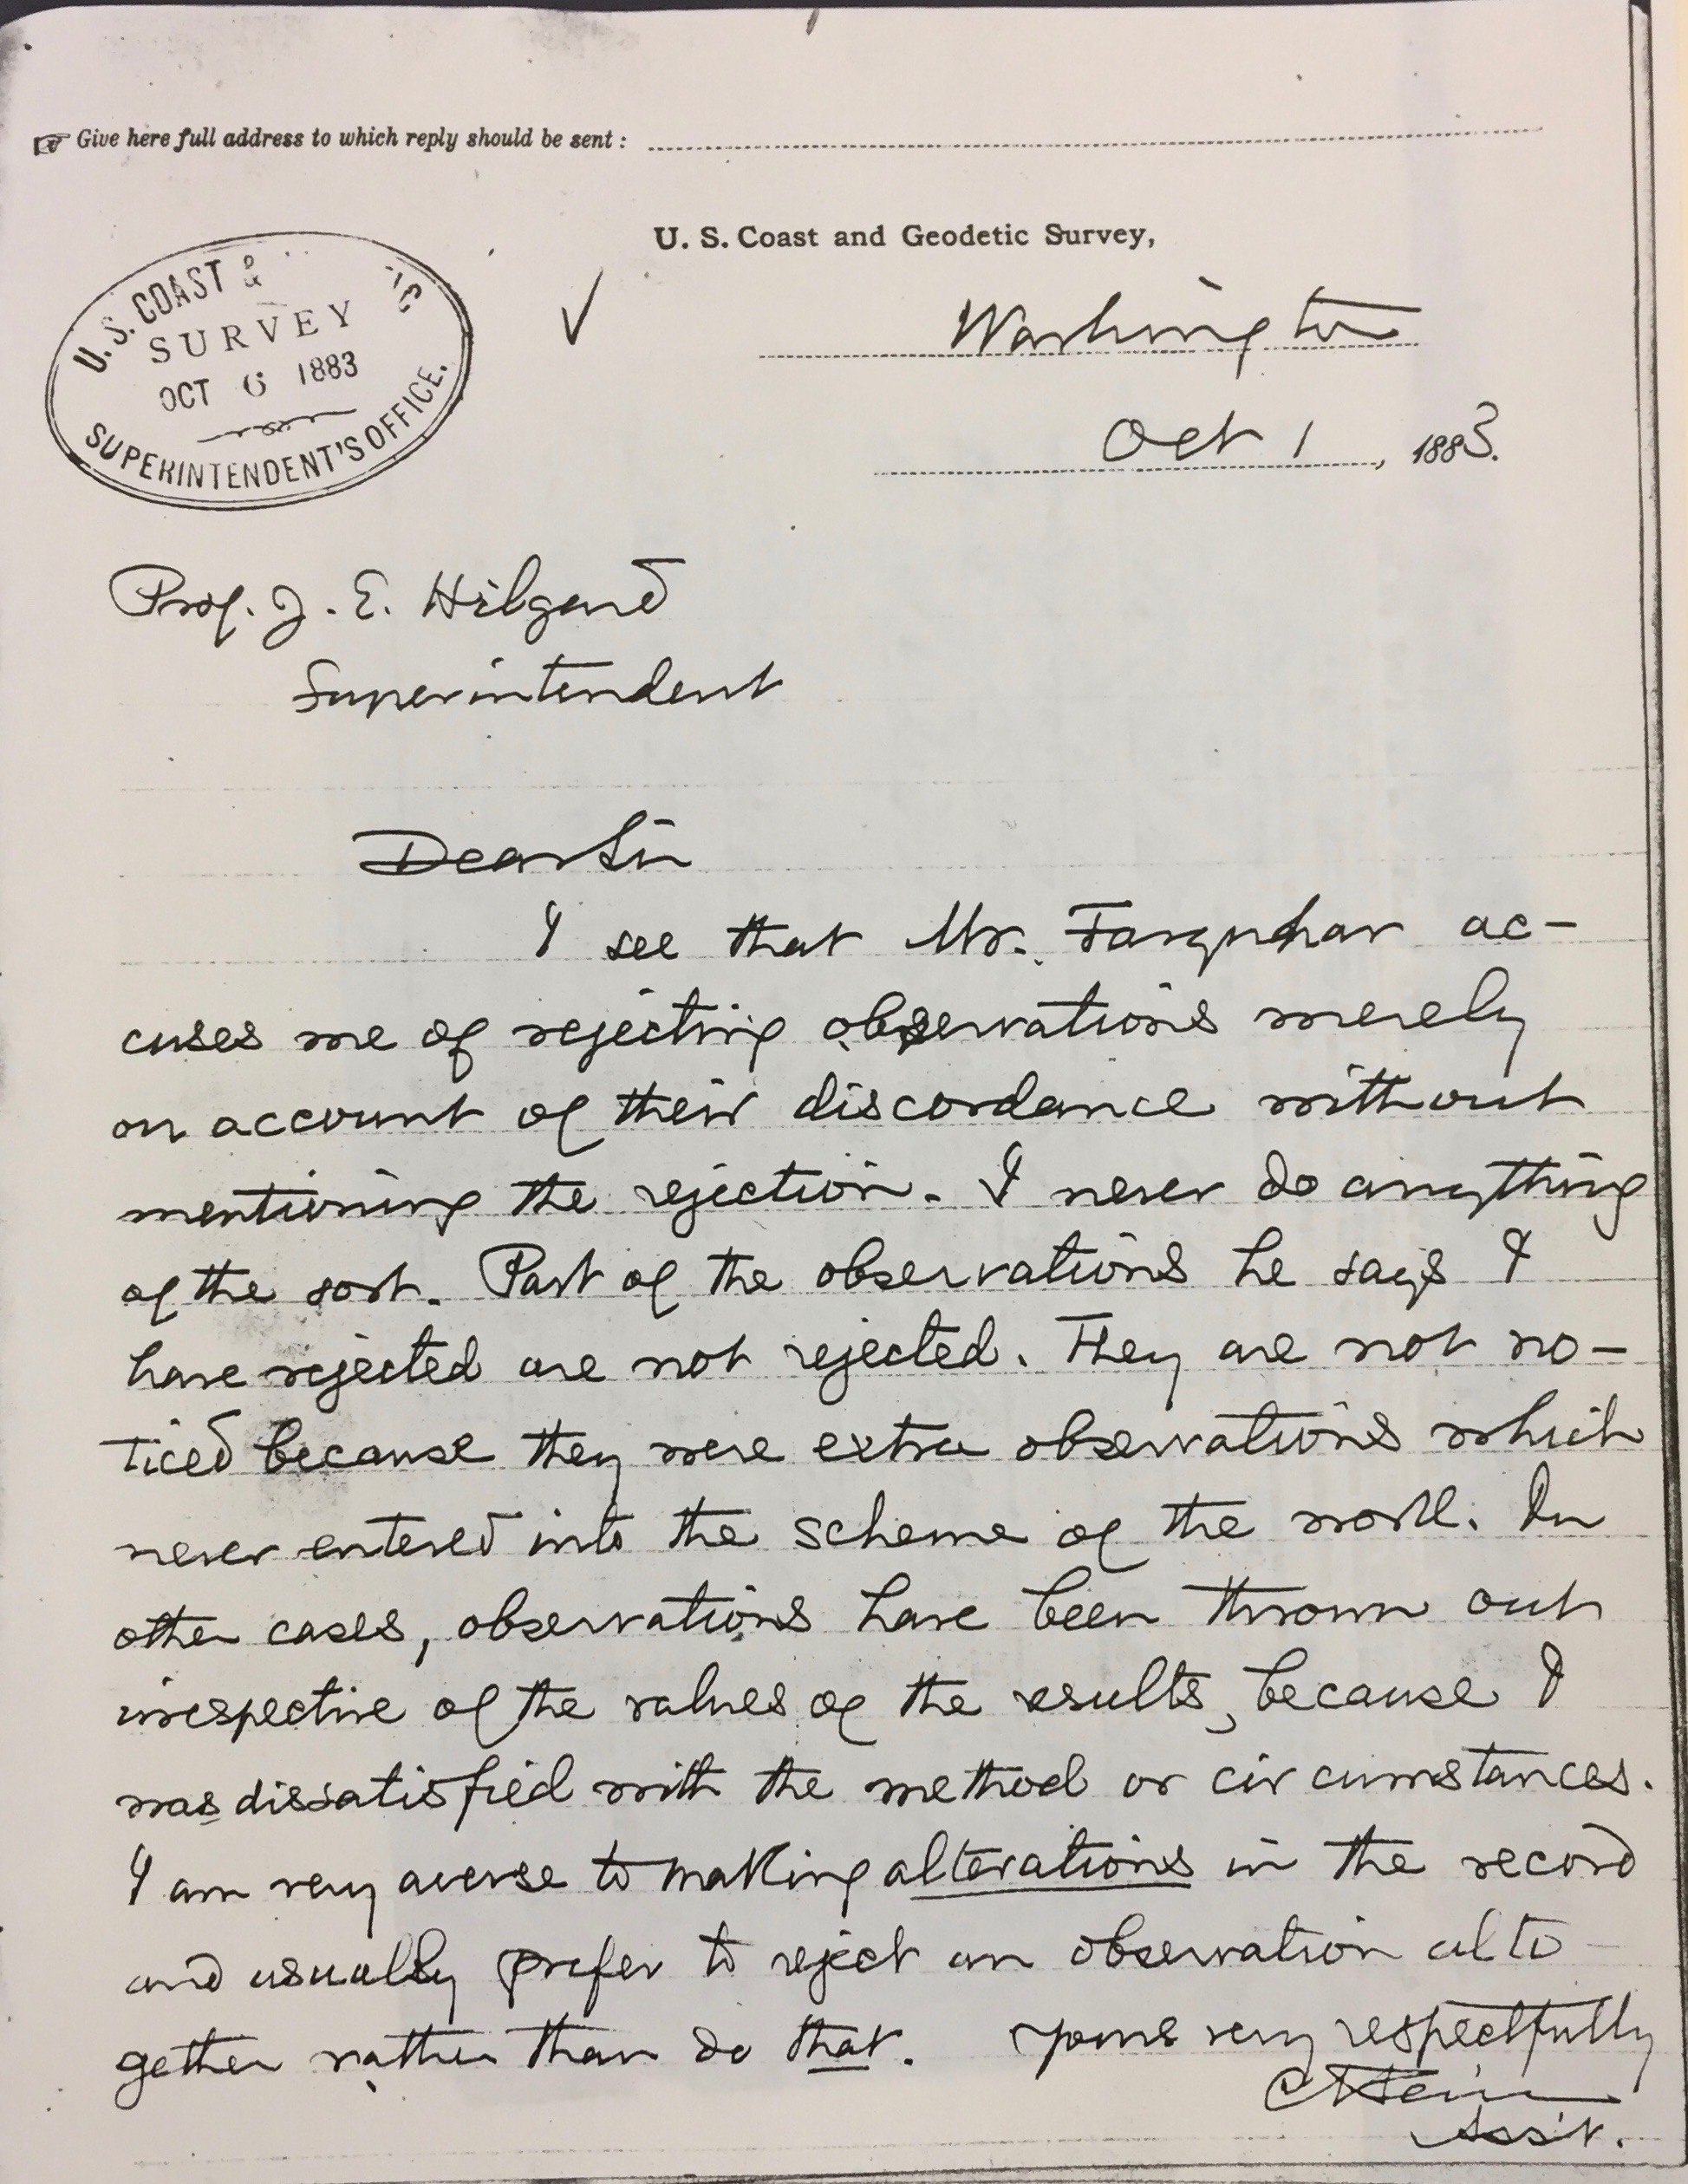 ☞ Give here full address to which reply should be sent :
U. S. Coast and Geodetic Survey,
U.S. COAST &
SURVEY
OCT 6 1883
SUPERINTENDENT'S OFFICE.
Washington
Oct 1, 1883.
Prof. J. E. Hilgard
Superintendent
Dear Sir
I see that Mr. Farquhar ac-
cuses me of rejecting observations merely
on account of their discordance without
mentioning the rejection. I never do anything
of the sort. Part of the observations he says I
have rejected are not rejected. They are not no-
ticed because they were extra observations which
never entered into the scheme of the work. In
other cases, observations have been thrown out
irrespective of the values of the results, because I
was dissatisfied with the method or circumstances.
I am very averse to making alterations in the record
and usually prefer to reject an observation alto-
gether rather than do that. Yours very respectfully
Asst.